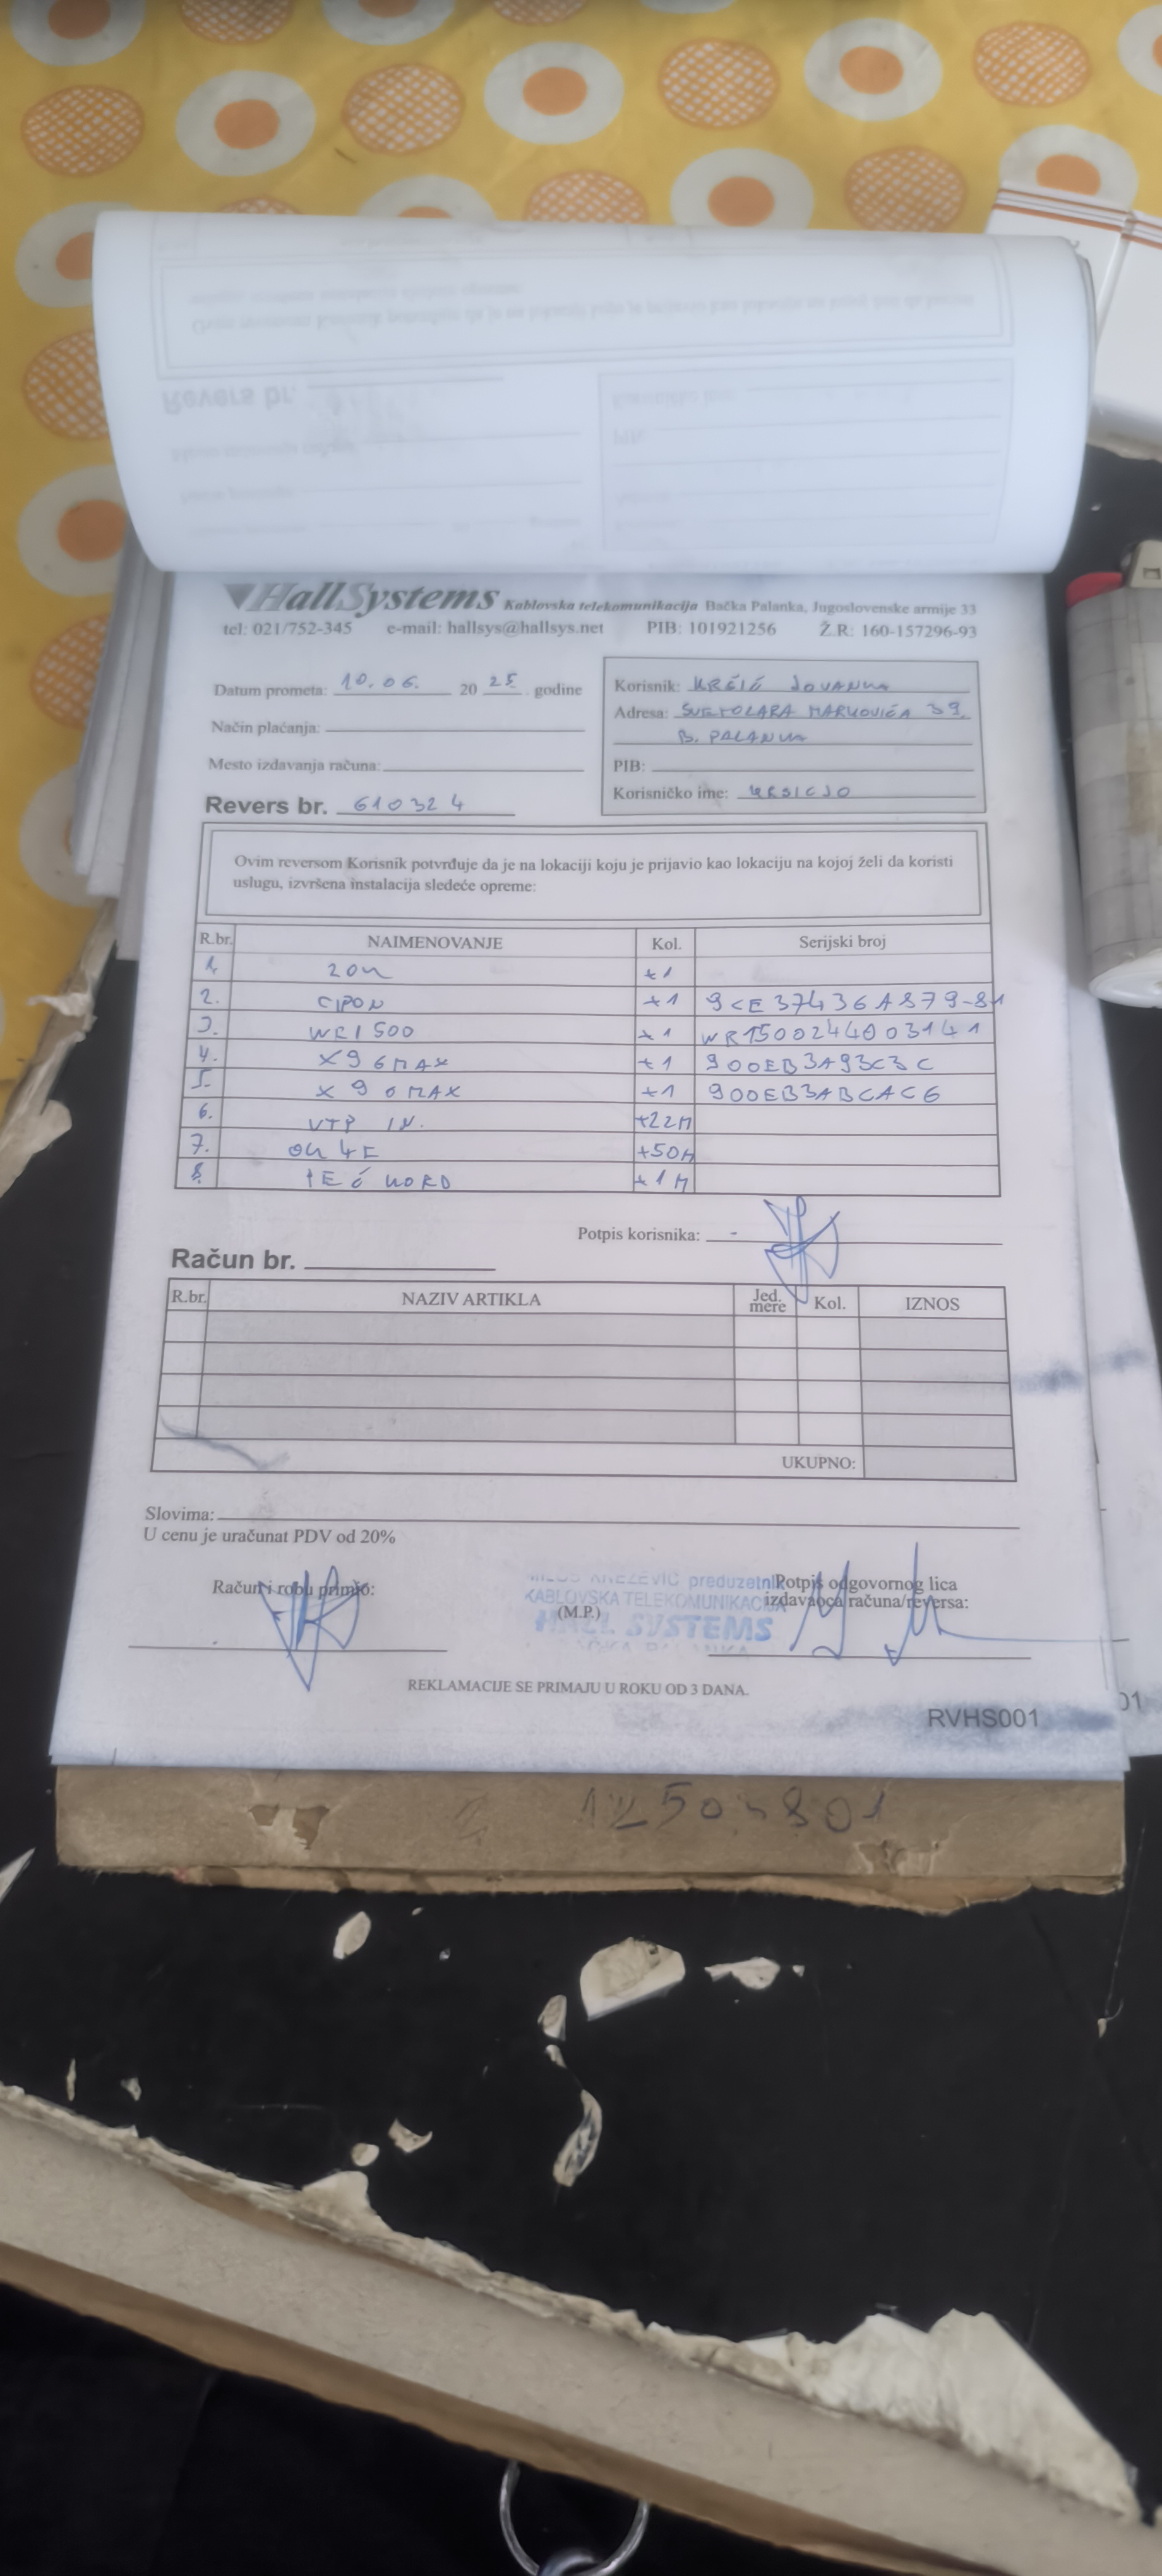 HallSystems Kablovska telekomunikacija Bačka Palanka, Jugoslovenske armije 33
tel: 021/752-345 e-mail: hallsys@hallsys.net PIB: 101921256 Ž.R: 160-157296-93
Datum prometa: 10.06. 20 25 godine
Način plaćanja:
Mesto izdavanja računa:
Revers br. 610324
Korisnik: KRČIĆ JOVANKA
Adresa: SVETOZARA MARKOVIĆA 39
B. PALANKA
PIB:
Korisničko ime: KRSICJO
Ovim reversom Korisnik potvrđuje da je na lokaciji koju je prijavio kao lokaciju na kojoj želi da koristi
uslugu, izvršena instalacija sledeće opreme:
R.br. NAIMENOVANJE Kol. Serijski broj
1. ZON +1
2. CPON +1 9CE37436A879-81
3. WR1500 +1 WR1500244003141
4. X96MAX +1 900EB3A93C3C
5. X96MAX +1 900EB3ABCAC6
6. UTP IN. +22M
7. OK 4F +50M
8. +1M
Potpis korisnika:
Račun br.
R.br. NAZIV ARTIKLA Jed. mere Kol. IZNOS
UKUPNO:
Slovima:
U cenu je uračunat PDV od 20%
Račun i robu primio:
MILOŠ KNEŽEVIĆ preduzetnik
KABLOVSKA TELEKOMUNIKACIJA
(M.P.)
HALL SYSTEMS
BAČKA PALANKA
Potpis odgovornog lica
izdavaoca računa/reversa:
REKLAMACIJE SE PRIMAJU U ROKU OD 3 DANA.
RVHS001
01